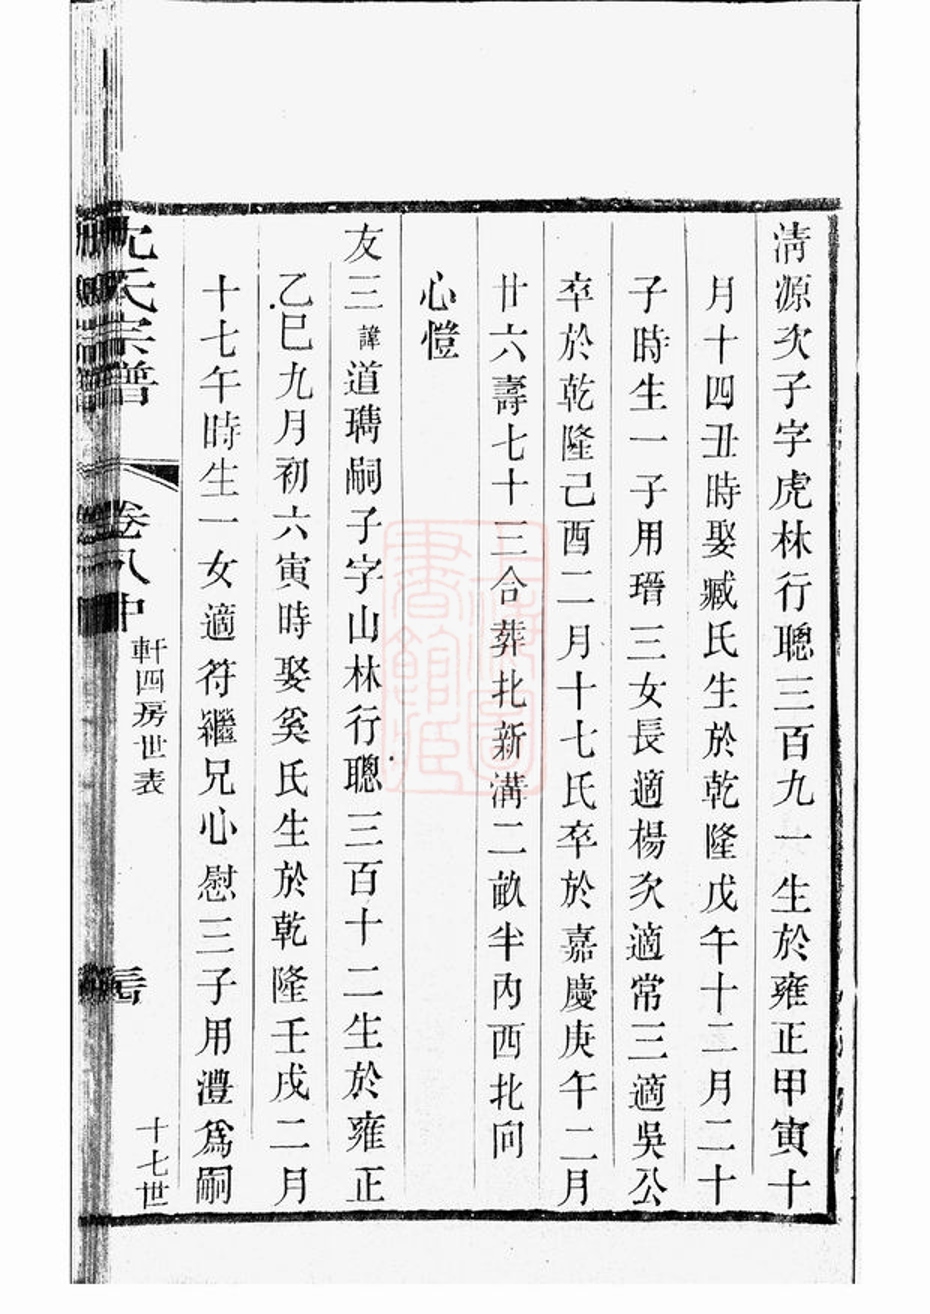 清源次子字虎林行聰三百九一生於雍正甲寅十
月十四丑時娶臧氏生於乾隆戊午十二月二十
子時生一子用瑨三女長適楊次適常三適吳公
卒於乾隆己酉二月十七氏卒於嘉慶庚午二月
廿六壽七十三合葬北新溝二畝半内西北向
心愷
友三諱道瑪嗣子字山林行聰三百十二生於雍正
乙巳九月初六寅時娶奚氏生於乾隆壬戌二月
十七午時生一女適符繼兄心慰三子用澧爲嗣
沈氏宗譜
卷八中
軒四房世表
十七世
上海圖書館藏